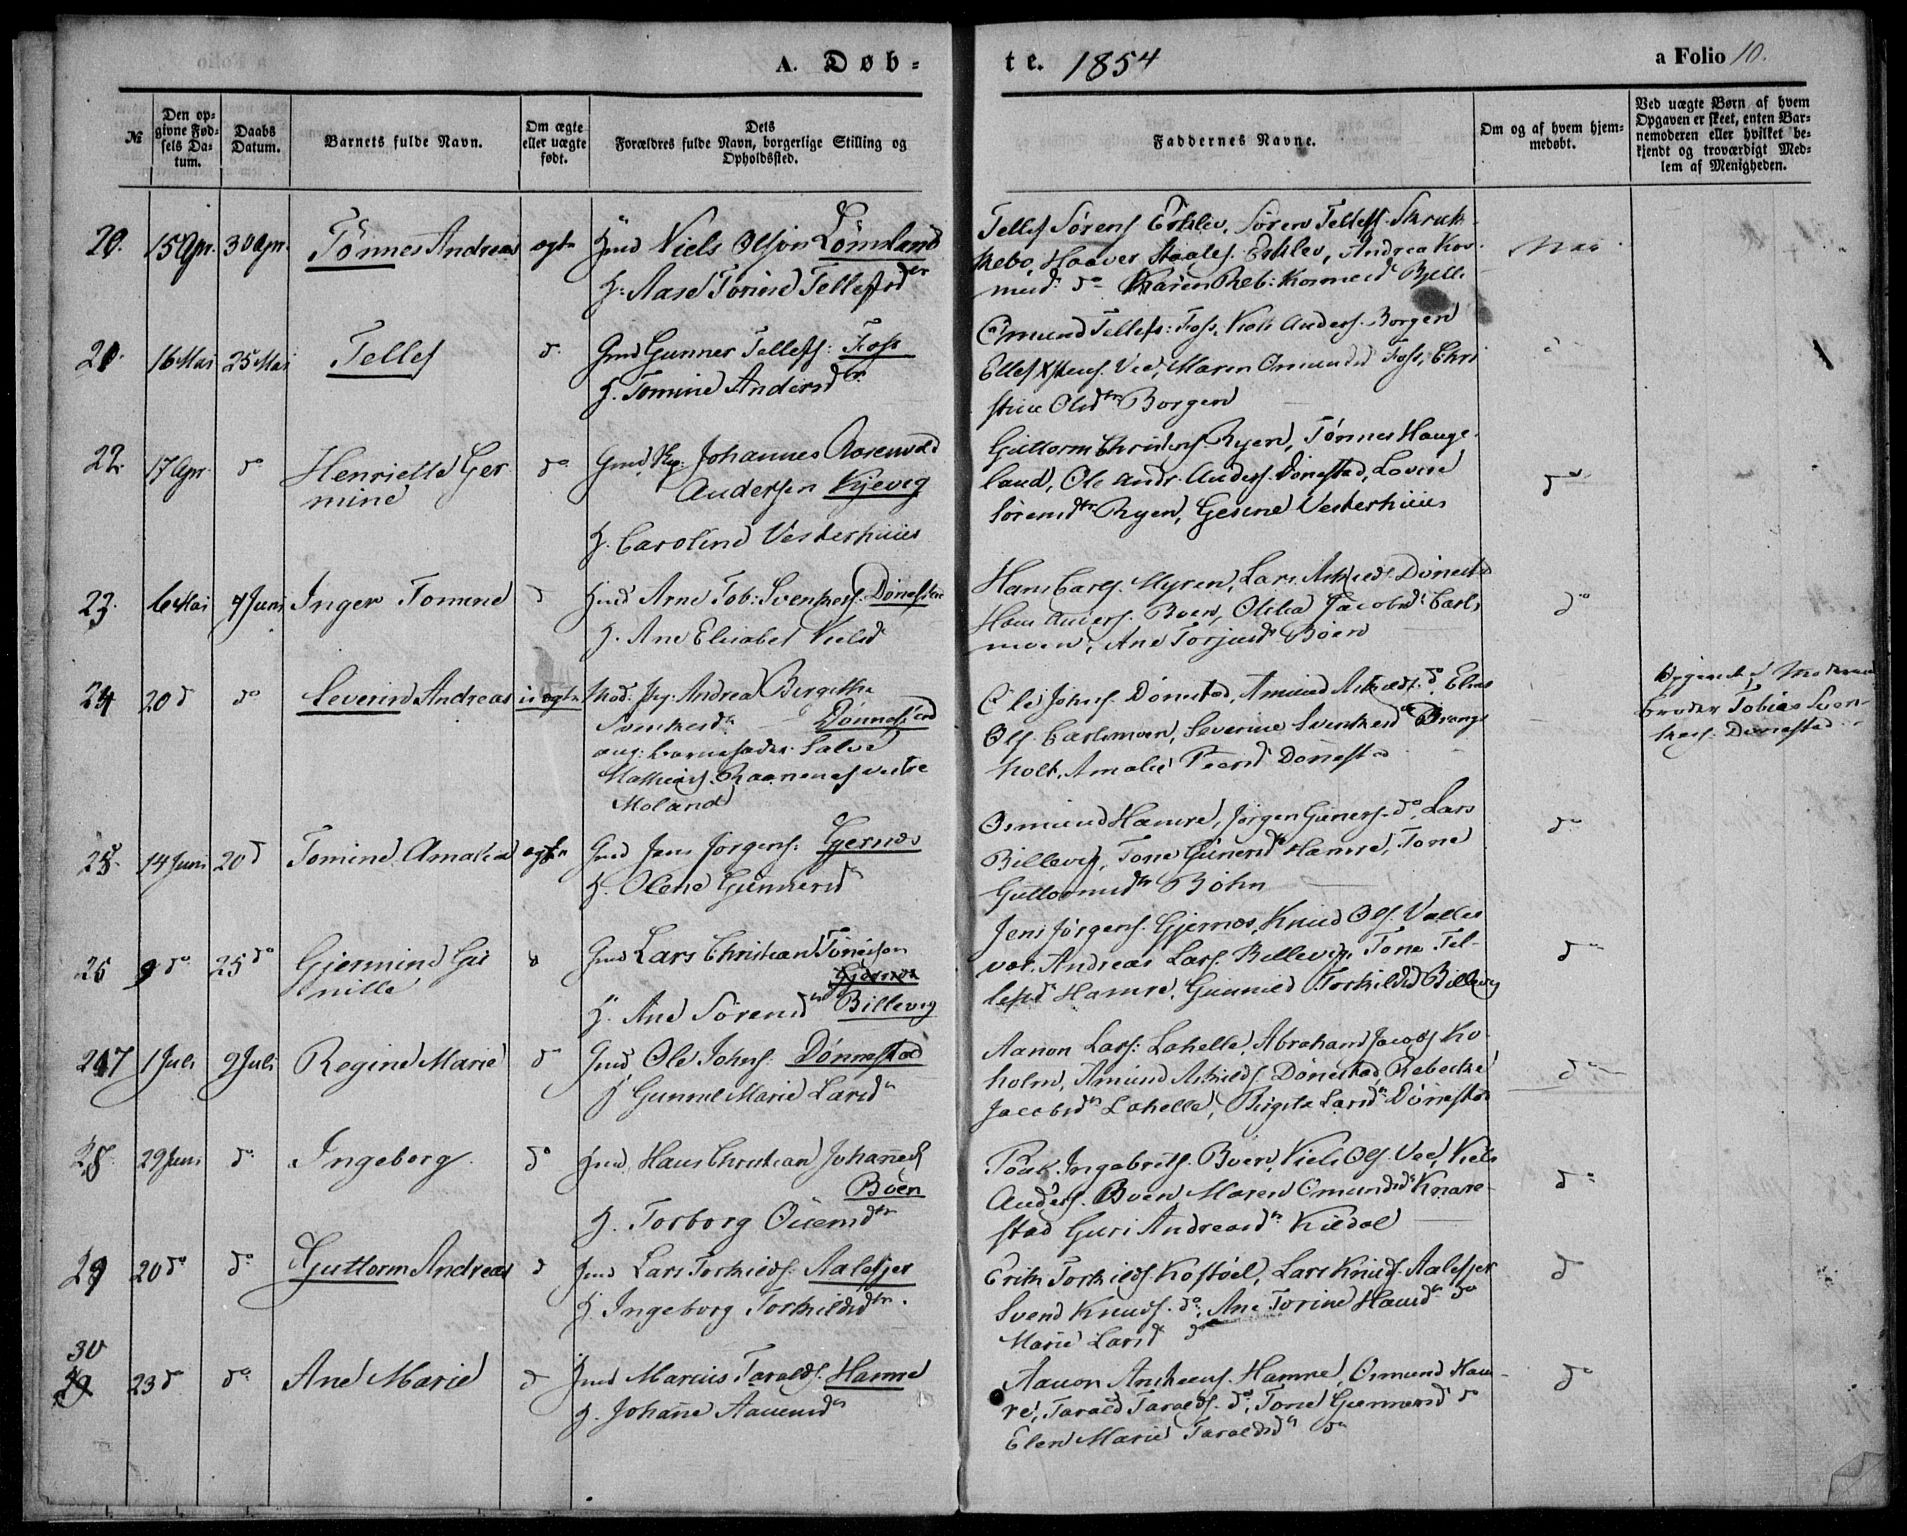 a Folio
A. Døb-
te. 1854
a Folio 10.
№
Den op-
givne Fød-
sels Da-
tum.
Daabs
Datum.
Barnets fulde Navn.
Om ægte
eller uægte
født.
Dets
Forældres fulde Navn, borgerlige Stilling og
Opholdssted.
Faddernes Navne.
Om og af hvem hjem-
medøbt.
Ved uægte Børn af hvem
Opgaven er skeet, enten Bar-
nemoderen eller hvilket be-
kjendt og troværdigt Med-
lem af Menigheden.
20. 15 Apr. 30 Apr. Tönnes Andreas ægte Niels Olsen Lömland
H. Aase Torine Tellefsdtr
Tellef Sørens. Eskelev, Søren Tellefs. Skruk-
kebo, Haaver Staales. Eskelev, Andrea Kor-
do Karen Reb:
21. 16 Mai 25 Mai Tellef d. Gmd Gunner Tellefs: Foss
H. Tomine Andersdtr.
Omund Tellefs: Foss, Niels Anders. Borgen
Ellef Vee, Maren Omundsd Foss, Chri
stine Olsdtr Borgen
22. 17 Apr. do Henriette Ger
mine
do Gmd Johannes
Andersen Kjevig
H. Caroline Vesterhuus
Guttorm Christens. Ryen, Tønnes Hauge-
land, Ole Andr. Anders. Dönestad, Lovise
Sørensdtr Ryen, Gesine Vesterhuus
23. 6 Mai 4 Juni Inger Tomine d Arne Tob: Svenkes. Dönestad
H. Ane Elisabet Nielsd
Hans Carls. Myren, Lars Dönestad
Hans Anders. Boen, Jacobsd: Carls
moen, Ane Torjusd Boen
24 20 d do Severin Andreas uægte Mod. Pig. Andrea Birgithe
Svenkesdtr Dönnestad
ang. barnefader Salve
Mathias. af vestre
Moland
Ole Johns. Dönestad, Amund do, Elias
Ols. Carlsmoen, Severine Svenkesdtr Drange
holt, Amalie Dönestad
Opgivet af Moderens
broder Tobias Sven-
kes. Dönestad
25. 14 Juni 20 d Tomine Amalia ægte Gmd Jens Jörgens: Gjernes
H. Olene Gunnersd
Osmund Hamre, Jörgen Guners. do, Lars
Billevig, Tone Gunersdtr Hamre, Tone
Guttormsdtr Böhn
26 9 do 25 do Gjermine Gu
nille
d Gmd Lars Christian Tönesson
Gjernes
H. Ane Sørensdtr Billevig
Jens Jörgens. Gjernes, Knud Ols. Valles
vær, Andreas Lars. Billevig, Tone Tel-
lefsd Hamre, Gunnild Torkildsd Billevig
do
27 1 Juli 9 Juli Regine Marie d Gmd, Ole Johns. Dönnestad
H Gunnel Marie Larsdtr
Aanon Lars: Lahelle, Abraham Jacobs Ko-
holm, Amund Dönestad, Rebekke
Jacobsdtr Lahelle, Birgite Larsdtr Dönestad
do
28. 29 Juni do Ingeborg do Gmd, Hans Christian Johannes
Boen
H. Torborg
Ingebrets. Boen, Niels Ols. Vee, Niels
Anders. Boen Maren Omundsdtr Knare-
stad Guri Andreasdtr Kiledal
do
29 20 do do Guttorm Andreas d Gmd Lars Torkilds. Aalefjer
H. Ingeborg Torkildsdtr.
Erik Torkilds. Lars Knuds. Aalefjer
Svend Knuds. do, Ane Torine Hansdtr do
Marie Larsd do
d
30
29 23 d do Ane Marie d Gmd Marcus Taralds. Hamre
H. Johane
Aanon Hamre, Osmund Ham-
re, Tarald Taralds. do, Tone Gunnersd do
Elen Marie Taraldsdtr do
do